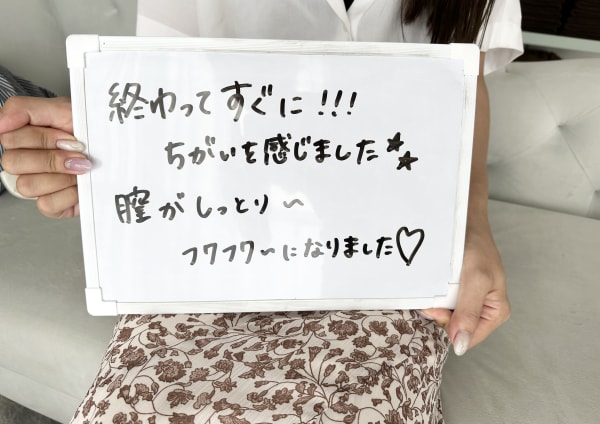 終わってすぐに!!!
ちがいを感じました☆☆
膣がしっとり〜
フワフワ〜になりました♡